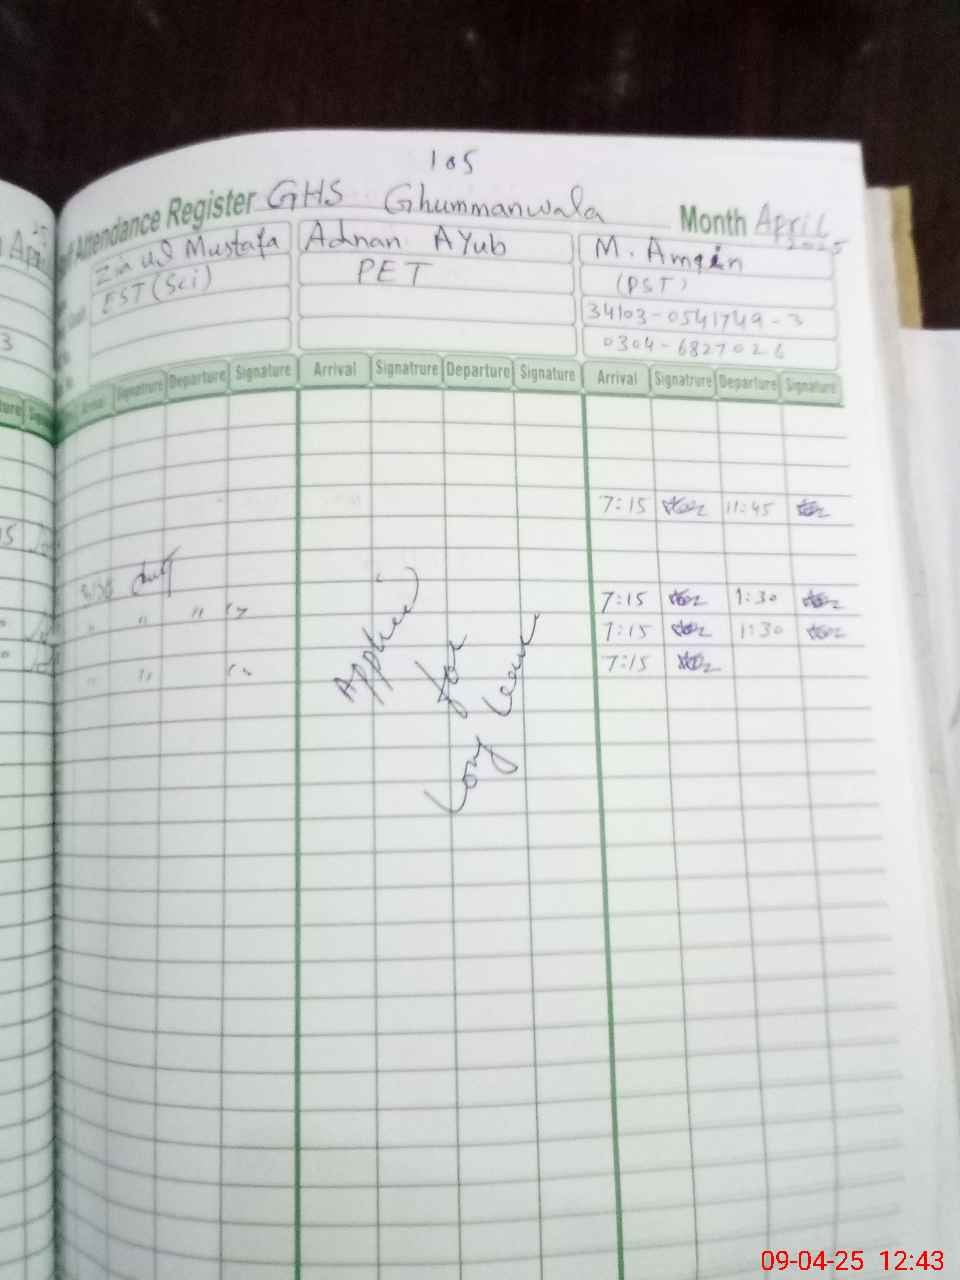 105
Attendance Register GHS Ghummanwala Month April 2025
Zia ul Mustafa Adnan AYub M. Amein
EST (Sci) PET (PST)
34103-0541749-3
0304-6827026
Arrival Signatrure Departure Signature Arrival Signatrure Departure Signature Arrival Signatrure Departure Signature
7:15 11:45
7:15 1:30
" " " 7:15 1:30
" " " 7:15
Applied
for
Long Leave
09-04-25 12:43